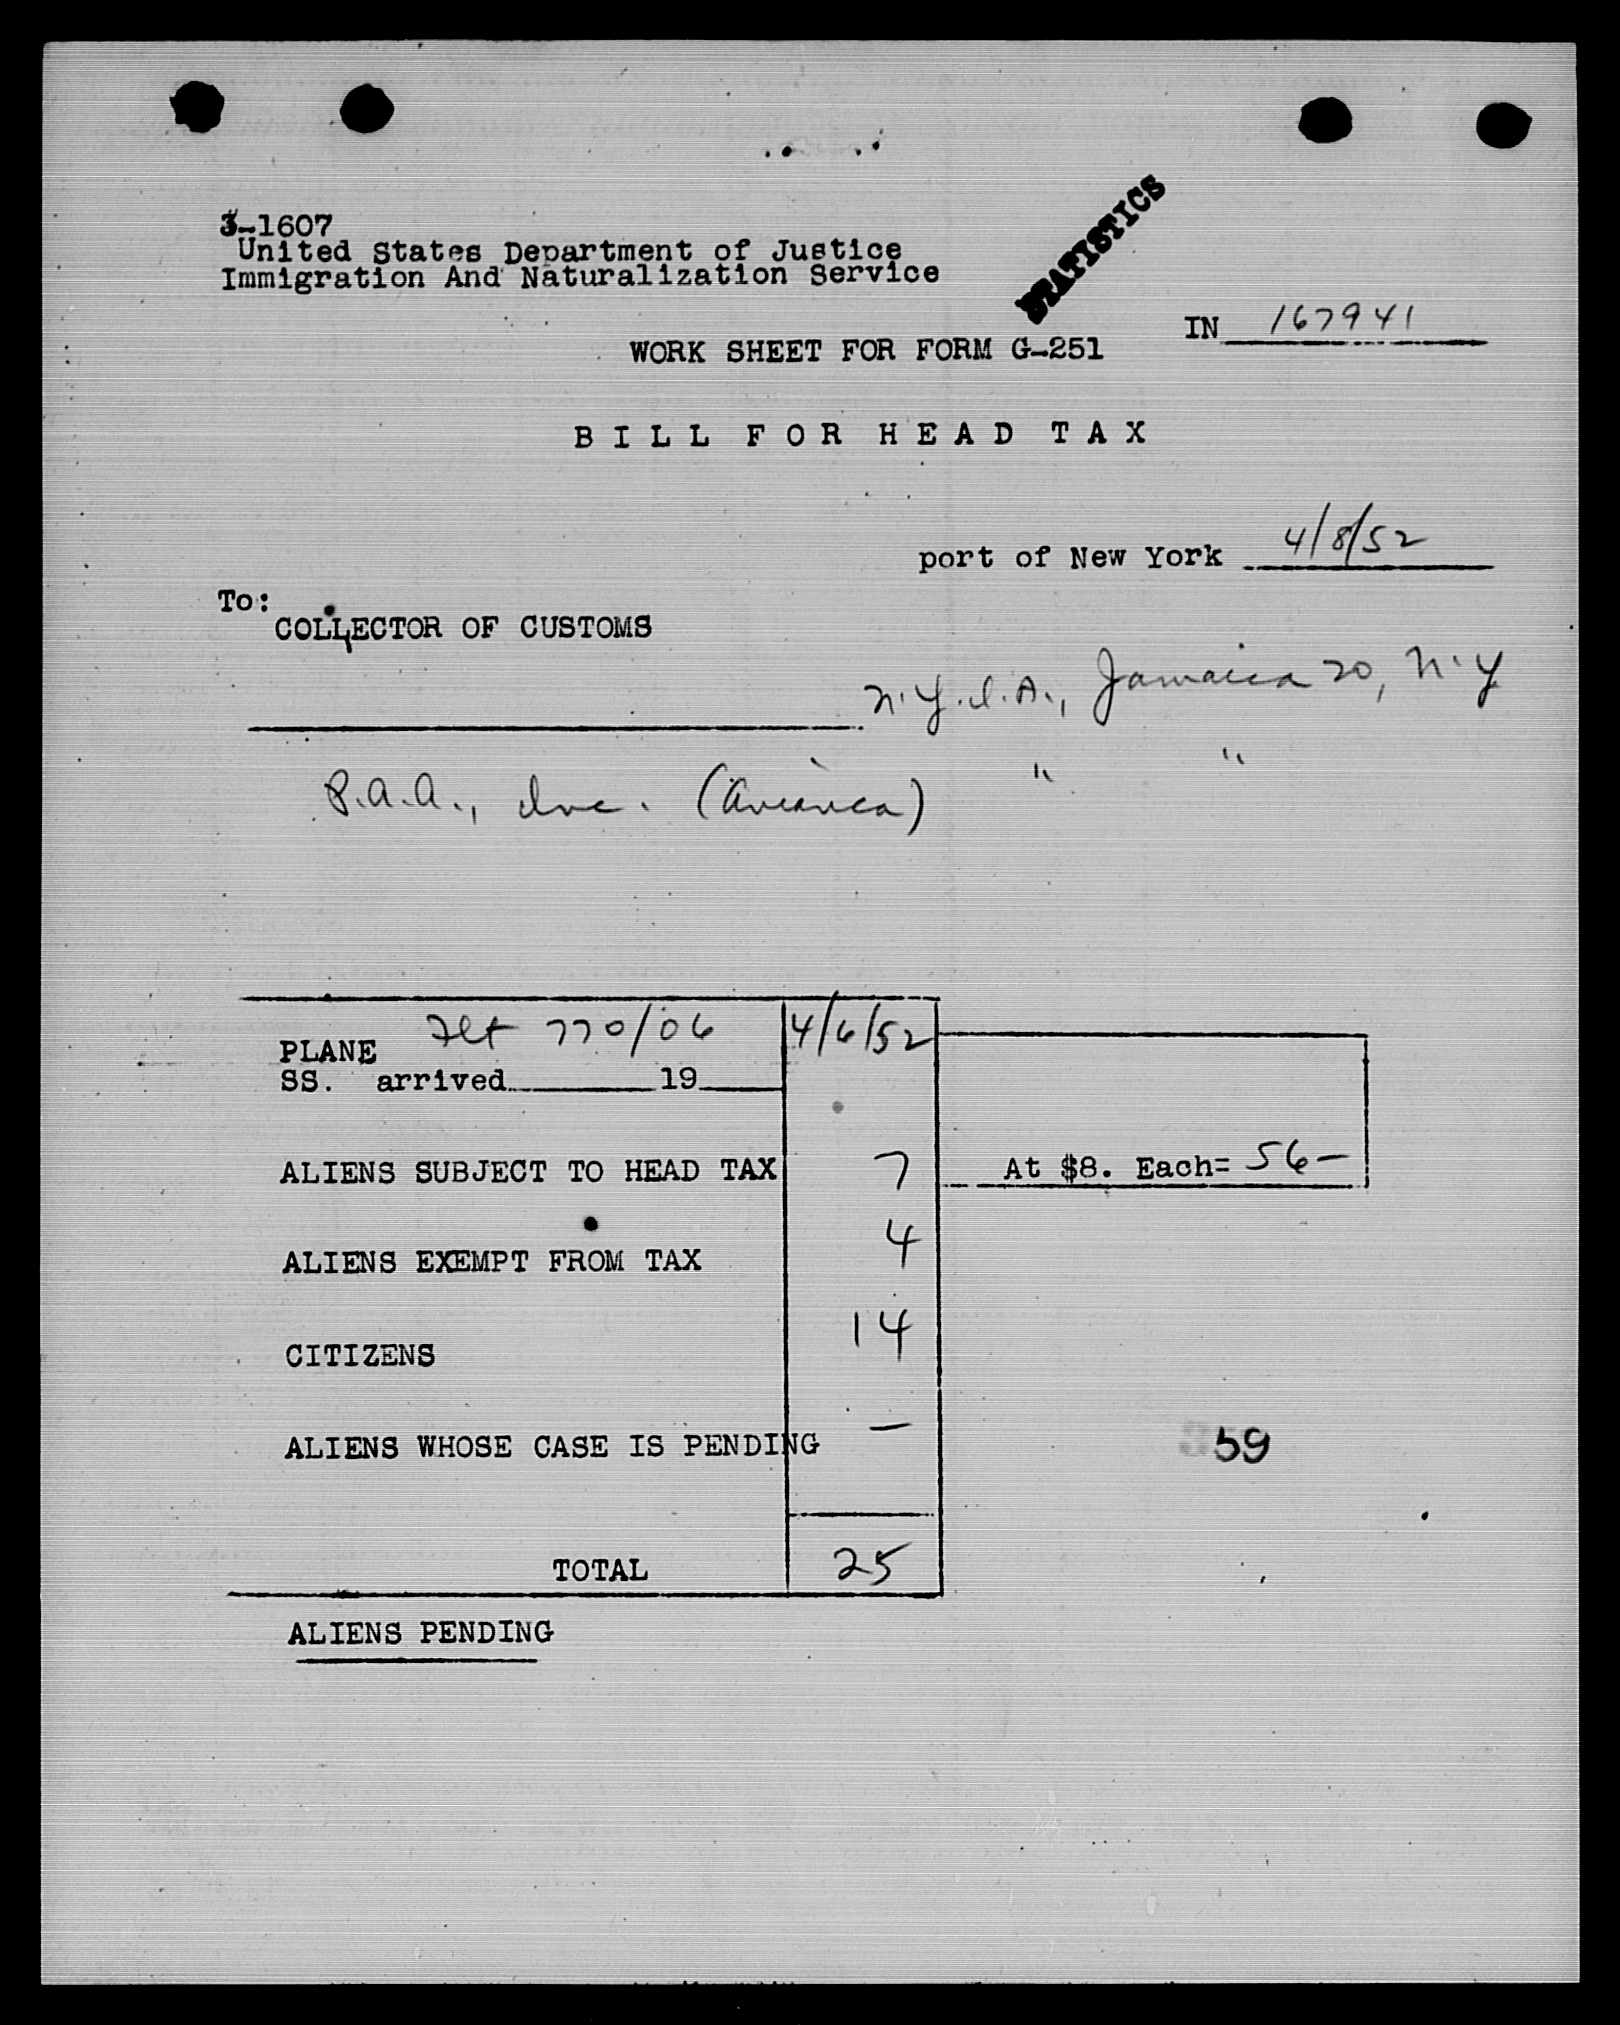 3-1607
United States Department of Justice
Immigration And Naturalization Service
STATISTICS
IN 167941
WORK SHEET FOR FORM G-251
BILL FOR HEAD TAX
port of New York 4/8/52
To:
COLLECTOR OF CUSTOMS
N.Y.I.A., Jamaica 20, N.Y
P.A.A., Inc. (Avianca) " "
PLANE Flt 770/06 4/6/52
SS. arrived 19
ALIENS SUBJECT TO HEAD TAX 7 At $8. Each= 56-
ALIENS EXEMPT FROM TAX 4
CITIZENS 14
ALIENS WHOSE CASE IS PENDING -
59
TOTAL 25
ALIENS PENDING